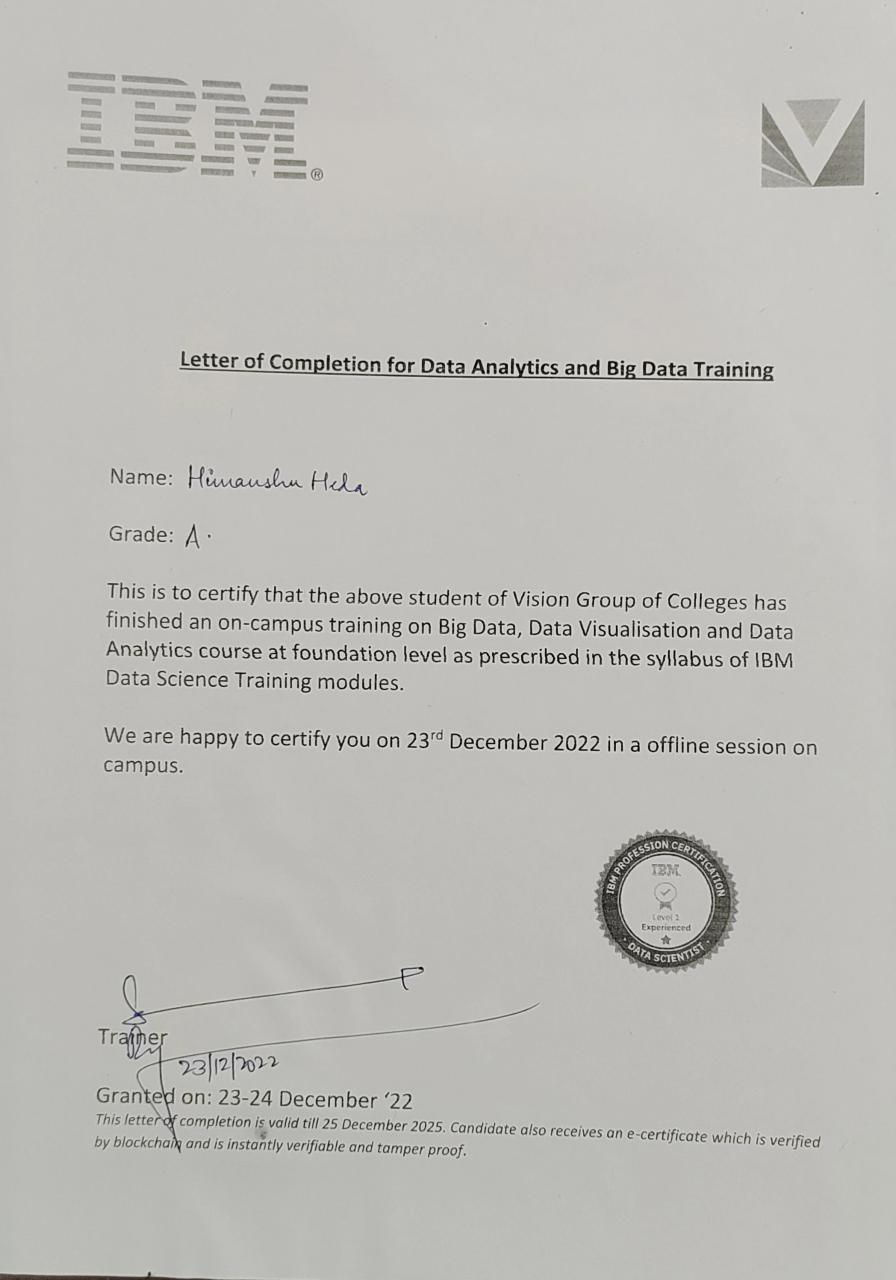 IBM®
Letter of Completion for Data Analytics and Big Data Training
Name: Himanshu Heda
Grade: A.
This is to certify that the above student of Vision Group of Colleges has
finished an on-campus training on Big Data, Data Visualisation and Data
Analytics course at foundation level as prescribed in the syllabus of IBM
Data Science Training modules.
We are happy to certify you on 23rd December 2022 in a offline session on
campus.
IBM PROFESSION CERTIFICATION
IBM
Level 1
Experienced
DATA SCIENTIST
Trainer
23/12/2022
Granted on: 23-24 December ‘22
This letter of completion is valid till 25 December 2025. Candidate also receives an e-certificate which is verified
by blockchain and is instantly verifiable and tamper proof.